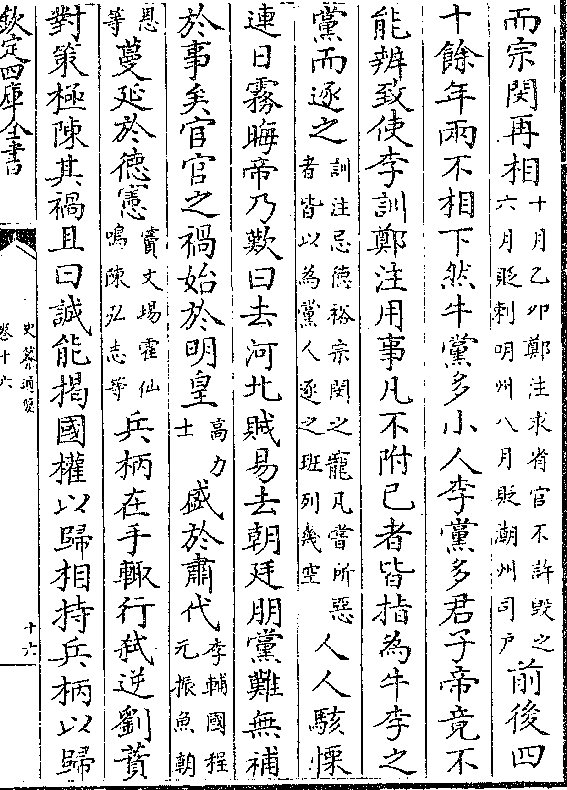 而宗閔再相十月乙卯鄭注求省官不許毀之六月貶刺明州八月貶潮州司戶前後四
十餘年兩不相下然牛黨多小人李黨多君子帝竟不
能辨致使李訓鄭注用事凡不附已者皆指為牛李之
黨而逐之訓注忌德裕宗閔之寵凡嘗所惡者皆以為黨人逐之班列幾空人人駭慄
連日霧晦帝乃歎曰去河北賊易去朝廷朋黨難無補
於事矣官官之禍始於明皇高力士盛於肅代李輔國程元振魚朝
恩等蔓延於德憲竇文場霍仙鳴陳弘志等兵柄在手輙行弑逆劉蕡
對策極陳其禍且曰誠能揭國權以歸相持兵柄以歸
欽定四庫全書
史纂通要
卷十六
十六